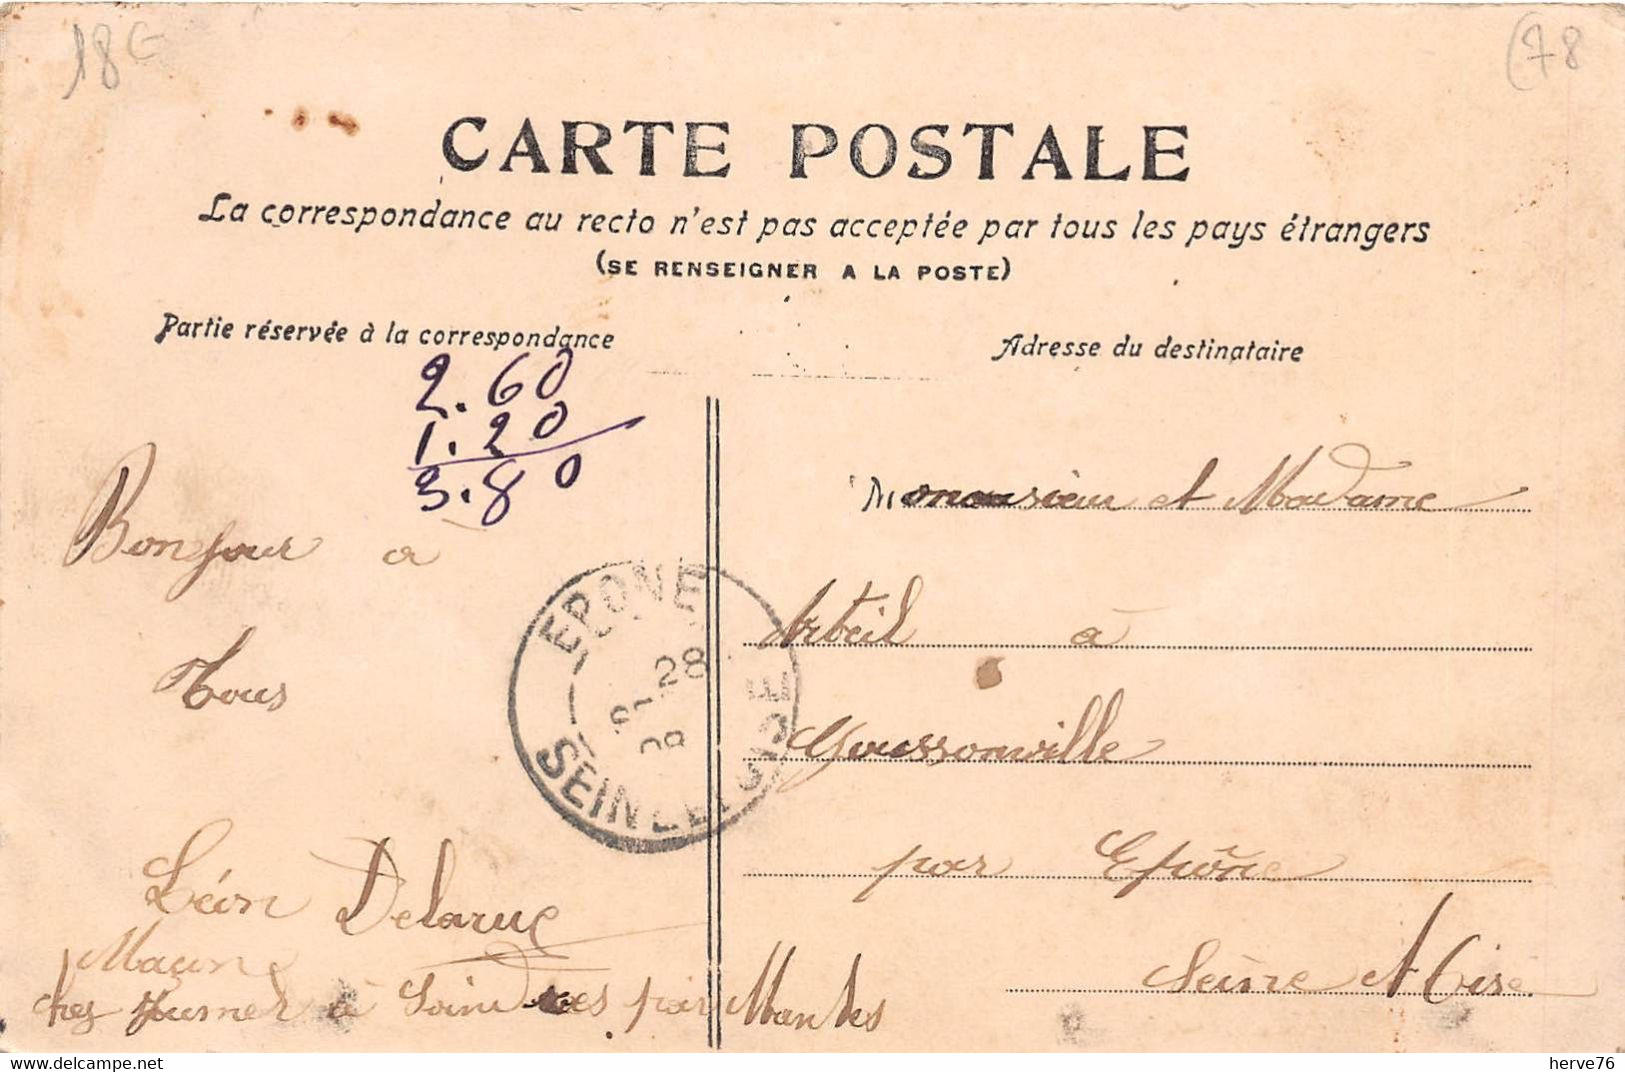 18G
(78
CARTE POSTALE
La correspondance au recto n'est pas acceptée par tous les pays étrangers
(SE RENSEIGNER A LA POSTE)
Partie réservée à la correspondance
2.60
1.20
3.80
Bonjour a
Tous
Léon Delarue
Maçon
chez à par Mantes
EPONE
28
SEINE ET OISE
Adresse du destinataire
Monsieur et Madame
Arteil à
Goussonville
par Epône
Seine et Oise
delcampe.net
herve76